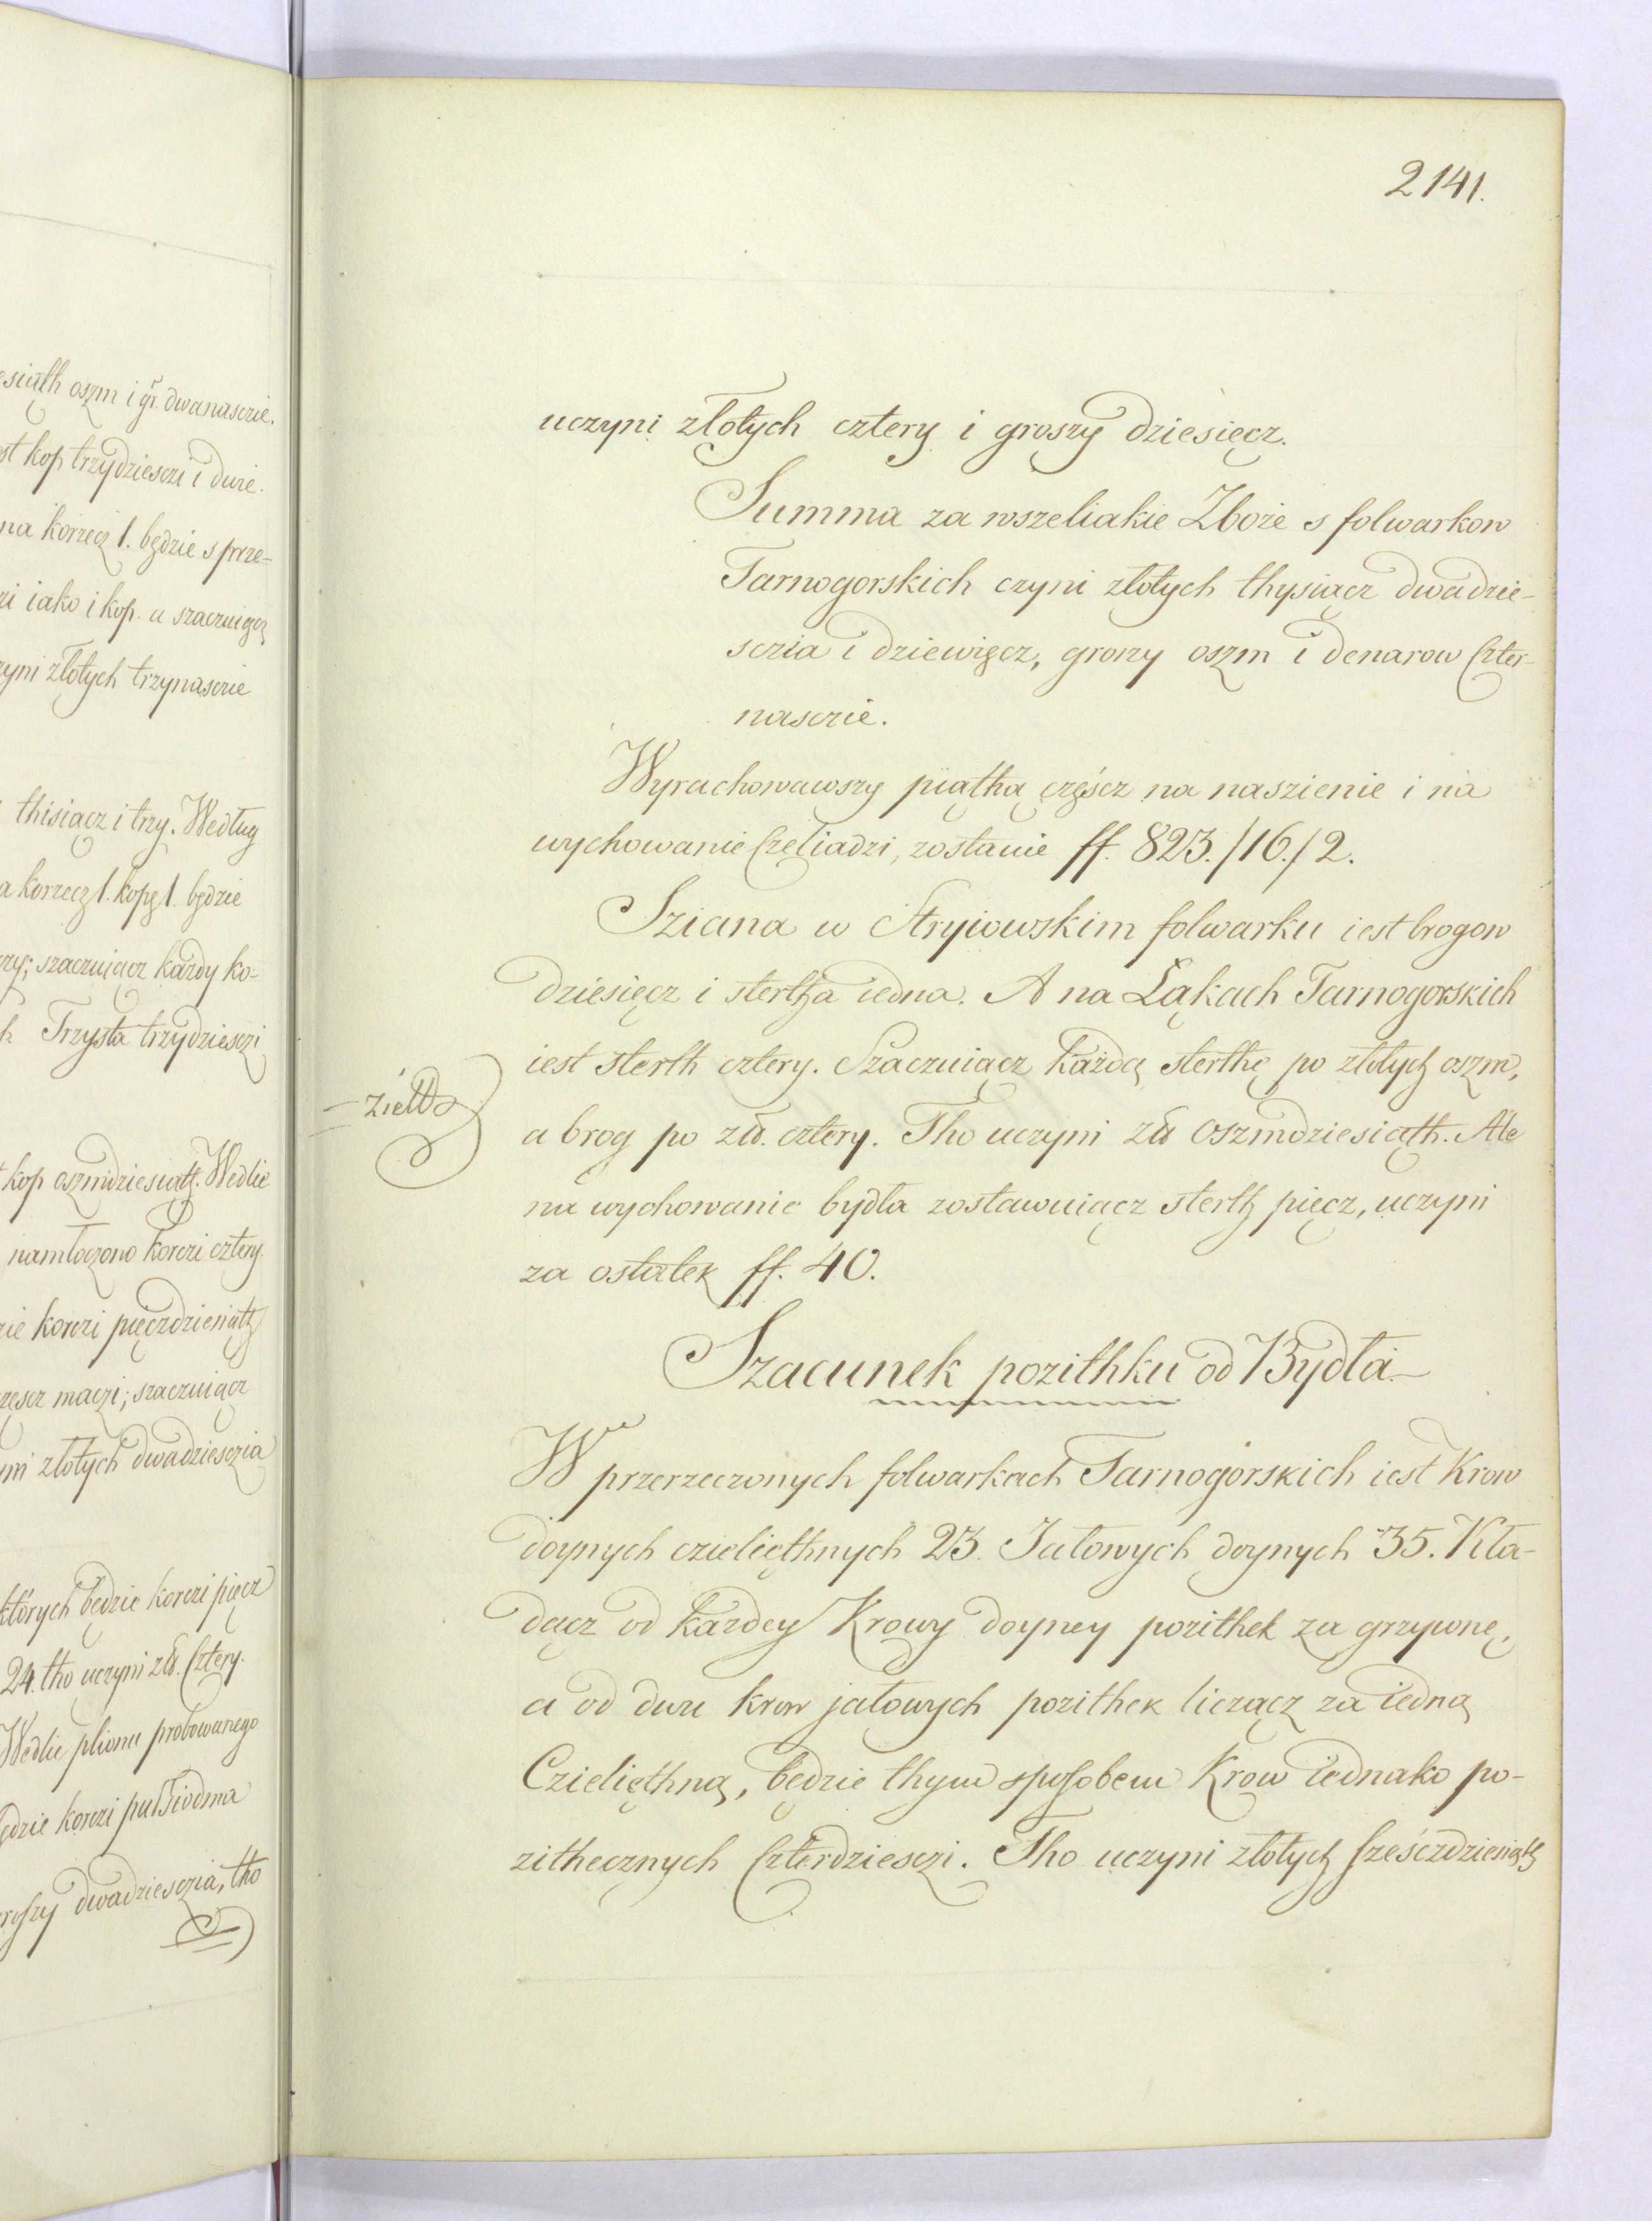 2141.
esiąth oszm i gr. dwanasczie.
st kop trzydziesczi i dwie.
na korzecz 1. będzie s prze-
iako i kop. a szaczuiącz
zyni złotych trzynasczie
thisiącz i trzy. Według
a korzecz 1. kopę 1. będzie
szaczuiącz każdy ko-
Trzysta trzydziesczi
kop oszmdziesiąth. Wedlie
namłoczono korczi cztery.
korczi pięczdziesiąth
maczi; szaczuiącz
złotych dwadziesczia
których będzie korczi pięcz
24. tho uczyni zł. Cztery.
Wedlie plionu probowanego
korczi puł siodma
dwadziesczia, tho
uczyni złotych cztery i groszy dziesięcz.
Summa za wszeliakie Zboże s folwarkow
Tarnogorskich czyni złotych thysiącz dwadzie-
sczia i dziewięcz, groszy oszm i denarow Czter-
nasczie.
Wyrachowawszy piąthą częścz na naszienie i na
wychowanie Czeliadzi, zostanie ff. 823./16./2.
Sziana w Stryiowskim folwarku iest brogow
dziesięcz i stertha iedna. A na Łąkach Tarnogorskich
iest sterth cztery. Szaczuiącz każdą sterthę po złotych oszm,
– zield
a brog po zł. cztery. Tho uczyni zł oszmdziesiąth. Ale
na wychowanie bydła zostawuiącz sterth pięcz, uczyni
za ostatek ff. 40.
Szacunek pozithku od Bydła.
W przerzeczonych folwarkach Tarnogorskich iest Krow
doynych czielięthnych 23. Jałowych doynych 35. Kła-
dącz od każdey Krowy doyney pozithek za grzywnę,
a od dwu krow jałowych pozithek licząc za iedną
Czieliethną, będzie thym sposobem Krow iednako po-
zithecznych Czterdziesczi. Tho uczyni złotych sześczdziesiąth